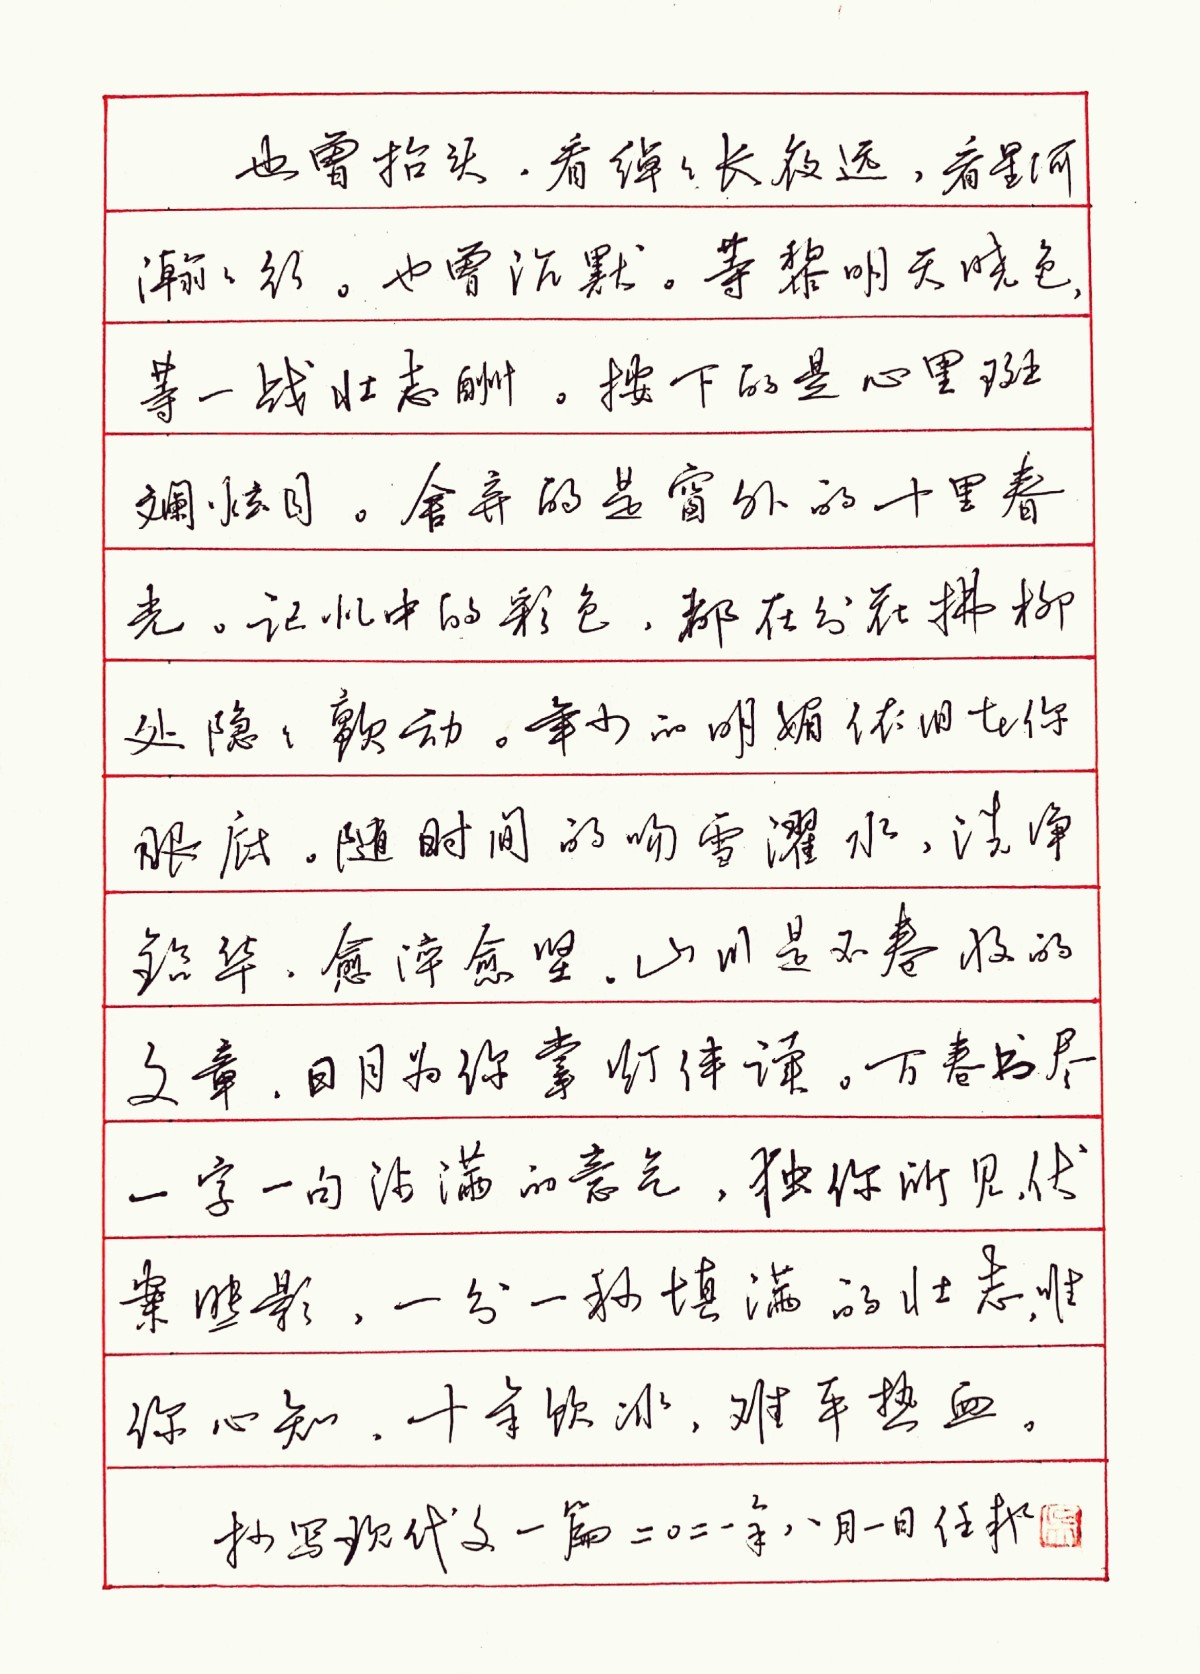 也曾抬头，看绰绰长夜远，看星河
瀚瀚行。也曾沉默。等黎明天晓色，
等一战壮志酬。按下的是心里斑
斓炫目。舍弃的是窗外的十里春
光。记忆中的彩色，都在分花拂柳
处隐隐颤动。年少的明媚依旧在你
眼底。随时间的吻雪濯水，洗净
铅华，愈淬愈坚。山川是不卷收的
文章，日月为你掌灯伴读。万卷书尽
一字一句沾满的意气，独你所见，伏
案映影，一分一秒填满的壮志，唯
你心知，十年饮冰，难平热血。
抄写现代文一篇二〇二一年八月一日任